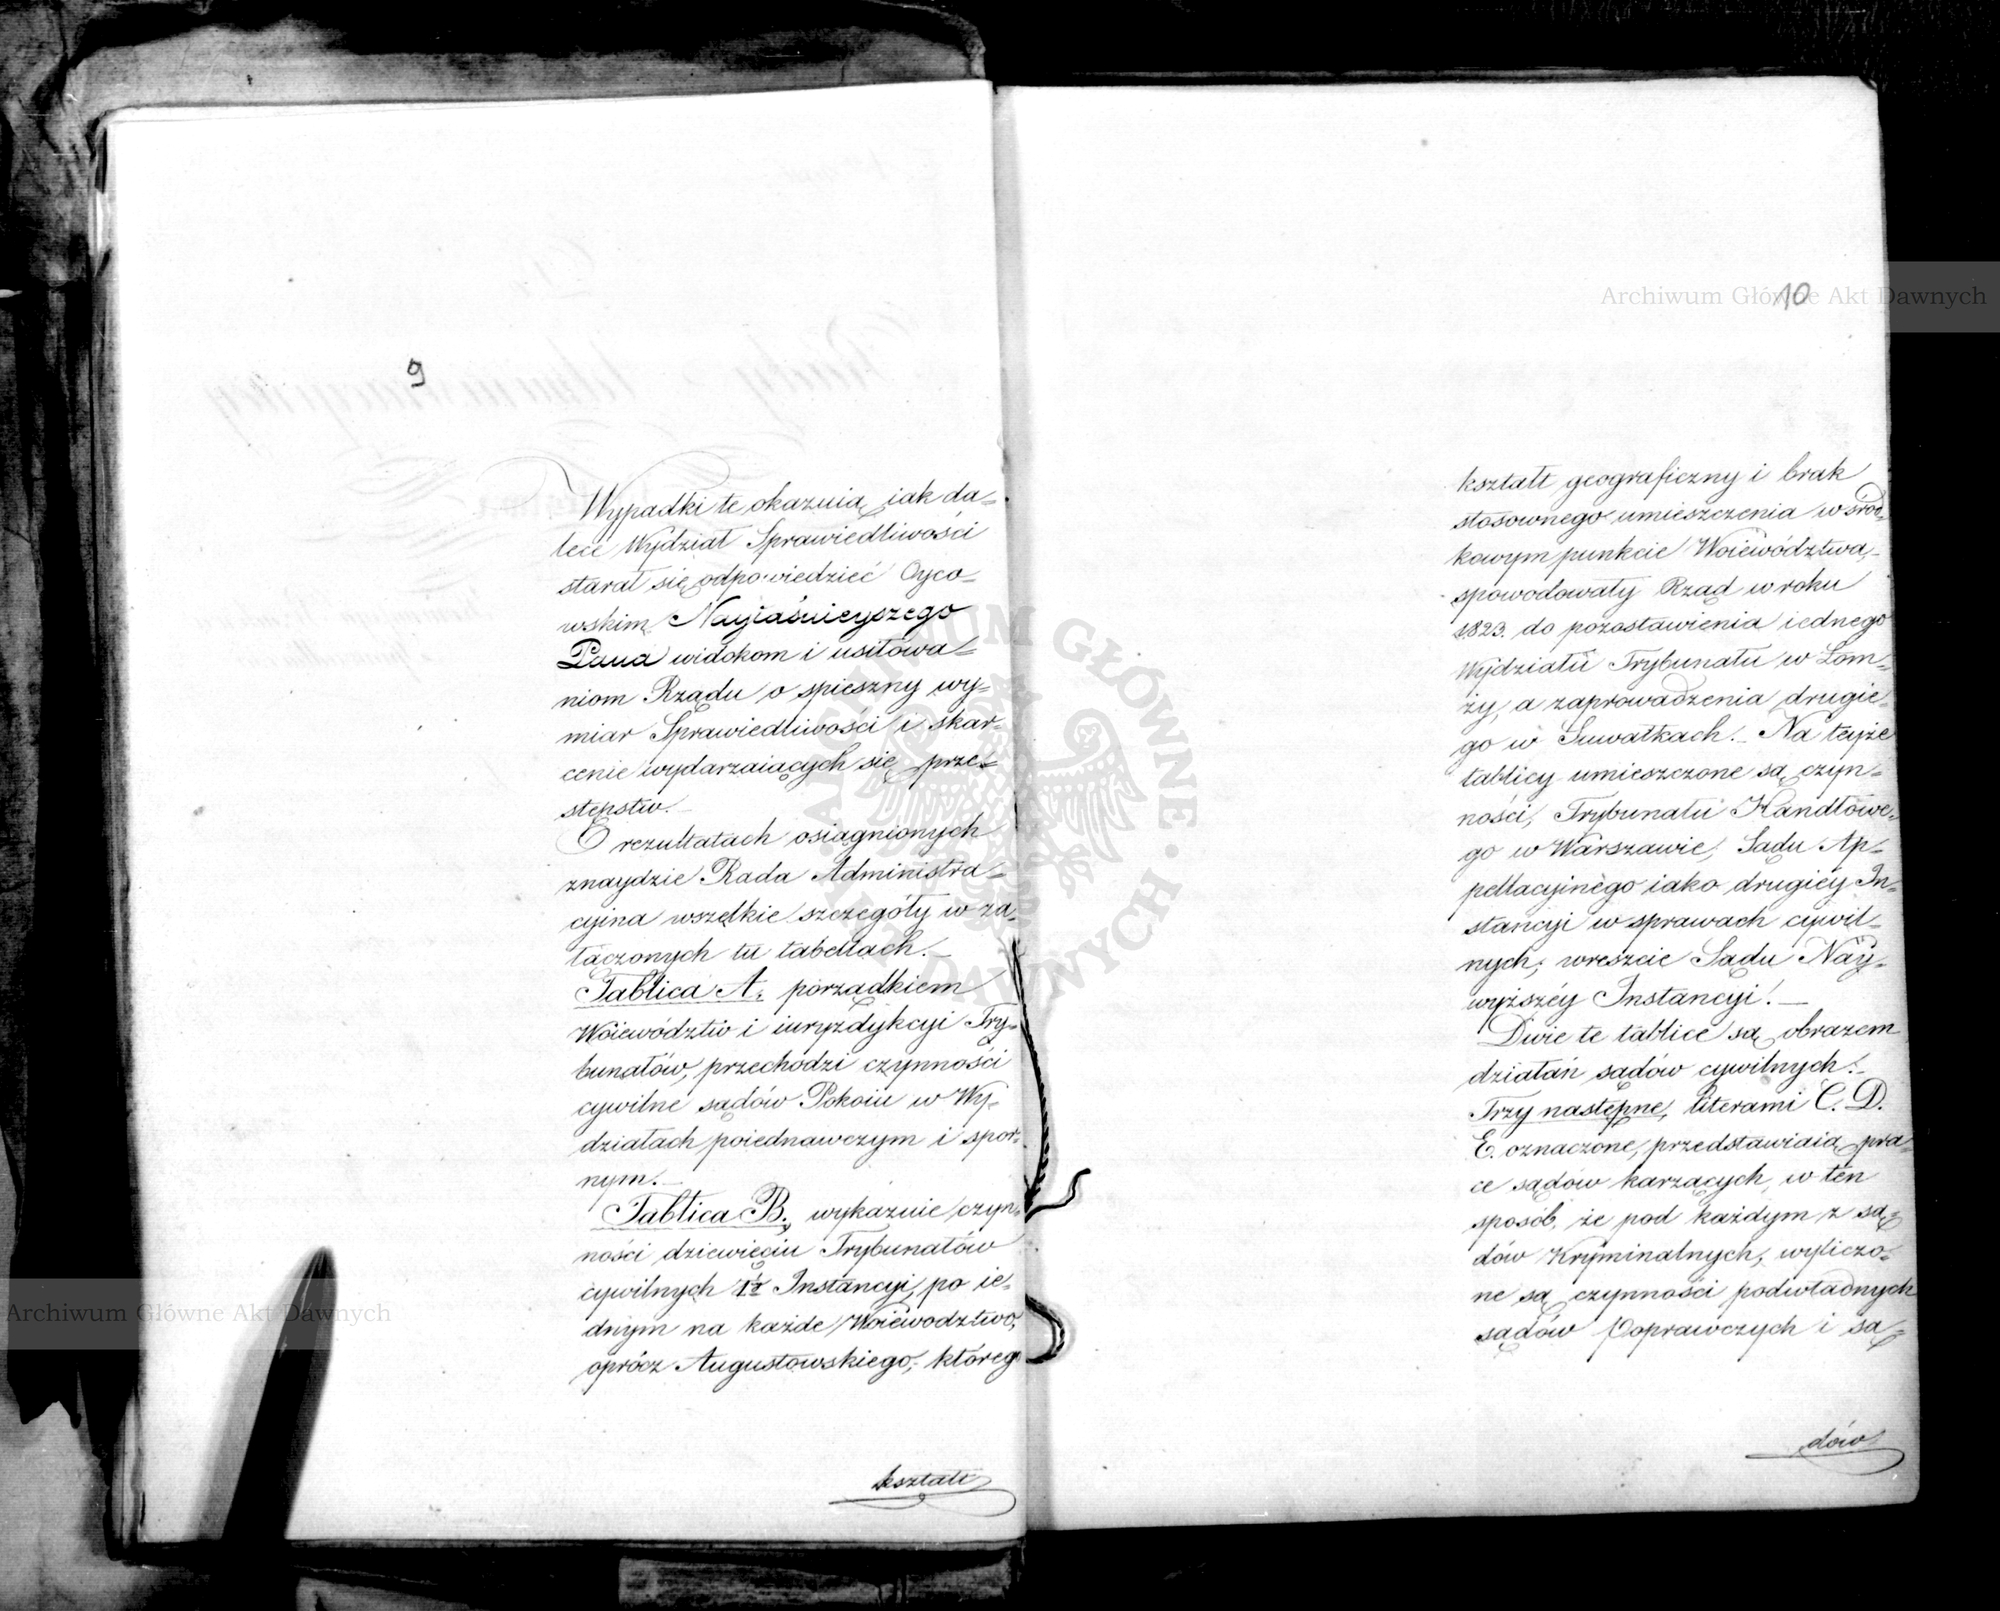 9
Wypadki te okazuią, iak da=
lece Wydział Sprawiedliwości
starał się odpowiedzieć Oyco=
wskim Nayiaśnieyszego
Pana widokom i usiłowa=
niom Rządu o spieszny wy=
miar Sprawiedliwości i skar=
cenie wydarzaiących się prze=
stępstw.
O rezultatach osiągnionych
znaydzie Rada Administra=
cyina wszelkie szczegóły w za=
łączonych tu tabellach.
Tablica A. porządkiem
Woiewództw i iuryzdykcyi Try=
bunałów, przechodzi czynności
cywilne sądów Pokoiu w Wy=
działach poiednawczym i spor=
nym.
Tablica B., wykazuie czyn=
ności dziewięciu Trybunałów
cywilnych 1éj Instancyi, po ie=
dnym na każde Woiewodztwo,
oprócz Augustowskiego, którego
kształt
10
kształt geograficzny i brak
stosownego umieszczenia w środ=
kowym punkcie Woiewództwa,
spowodowały Rząd w roku
1823. do pozostawienia iednego
Wydziału Trybunału w Łom=
ży, a zaprowadzenia drugie=
go w Suwałkach. Na teyże
tablicy umieszczone są czyn=
ności, Trybunału Handlowe=
go w Warszawie, Sądu Ap=
pellacyinego iako drugiéy In=
stancyi w sprawach cywil=
nych, wreszcie Sądu Nay=
wyższéy Instancyi.
Dwie te tablice są obrazem
działań sądów cywilnych.
Trzy następne, literami C. D.
E. oznaczone, przedstawiaią pra=
ce sądów karzących, w ten
sposób, że pod każdym z są=
dów Kryminalnych, wyliczo=
ne są czynności podwładnych
sądów Poprawczych i są=
dów
Archiwum Główne Akt Dawnych
Archiwum Główne Akt Dawnych
ARCHIWUM GŁÓWNE AKT DAWNYCH